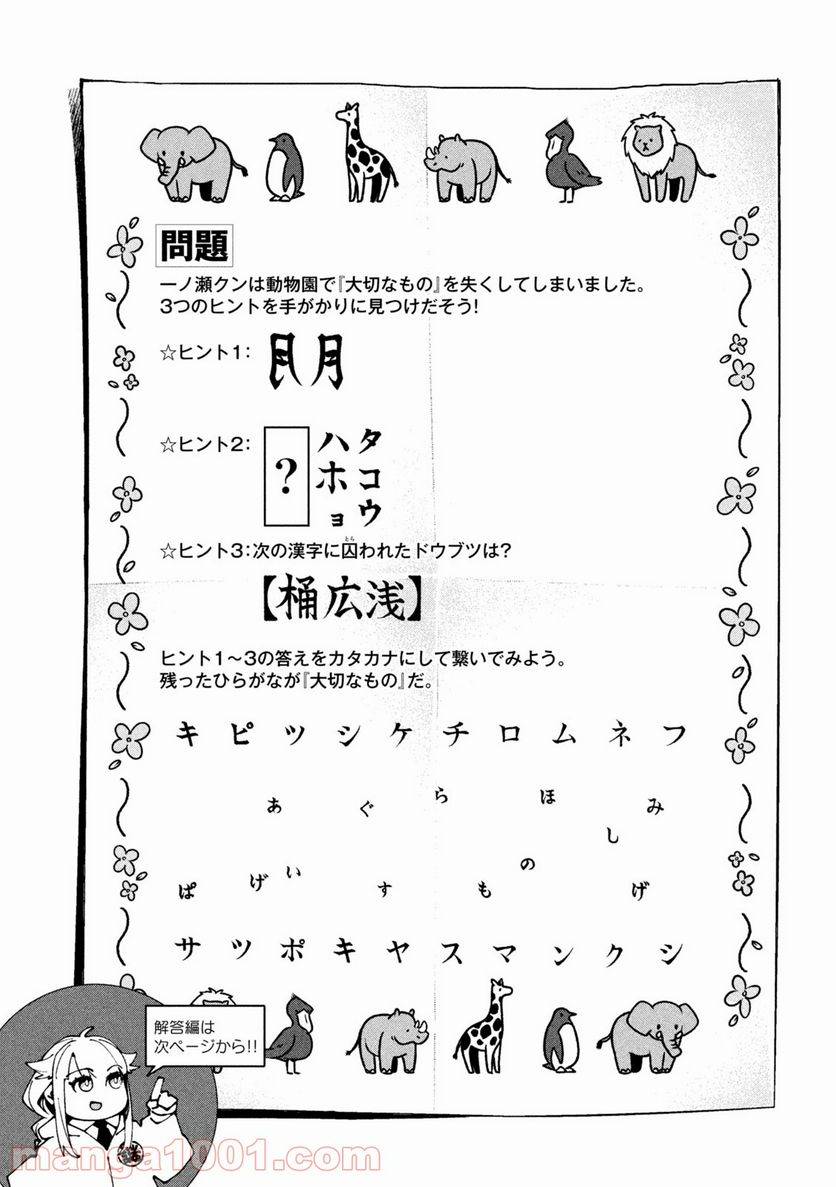 問題
一ノ瀬クンは動物園で『大切なもの』を失くしてしまいました。
3つのヒントを手がかりに見つけだそう!
☆ヒント1:
月
☆ヒント2:
?
ハホョ
タコウ
☆ヒント3:次の漢字に囚われたドウブツは?
とら
【桶広浅】
ヒント1~3の答えをカタカナにして繋いでみよう。
残ったひらがなが『大切なもの』だ。
キピツシケチロムネフ
あぐらほみ
し
ぱげいすものげ
サツポキヤスマンクシ
解答編は
次ページから!!
manga1001.com